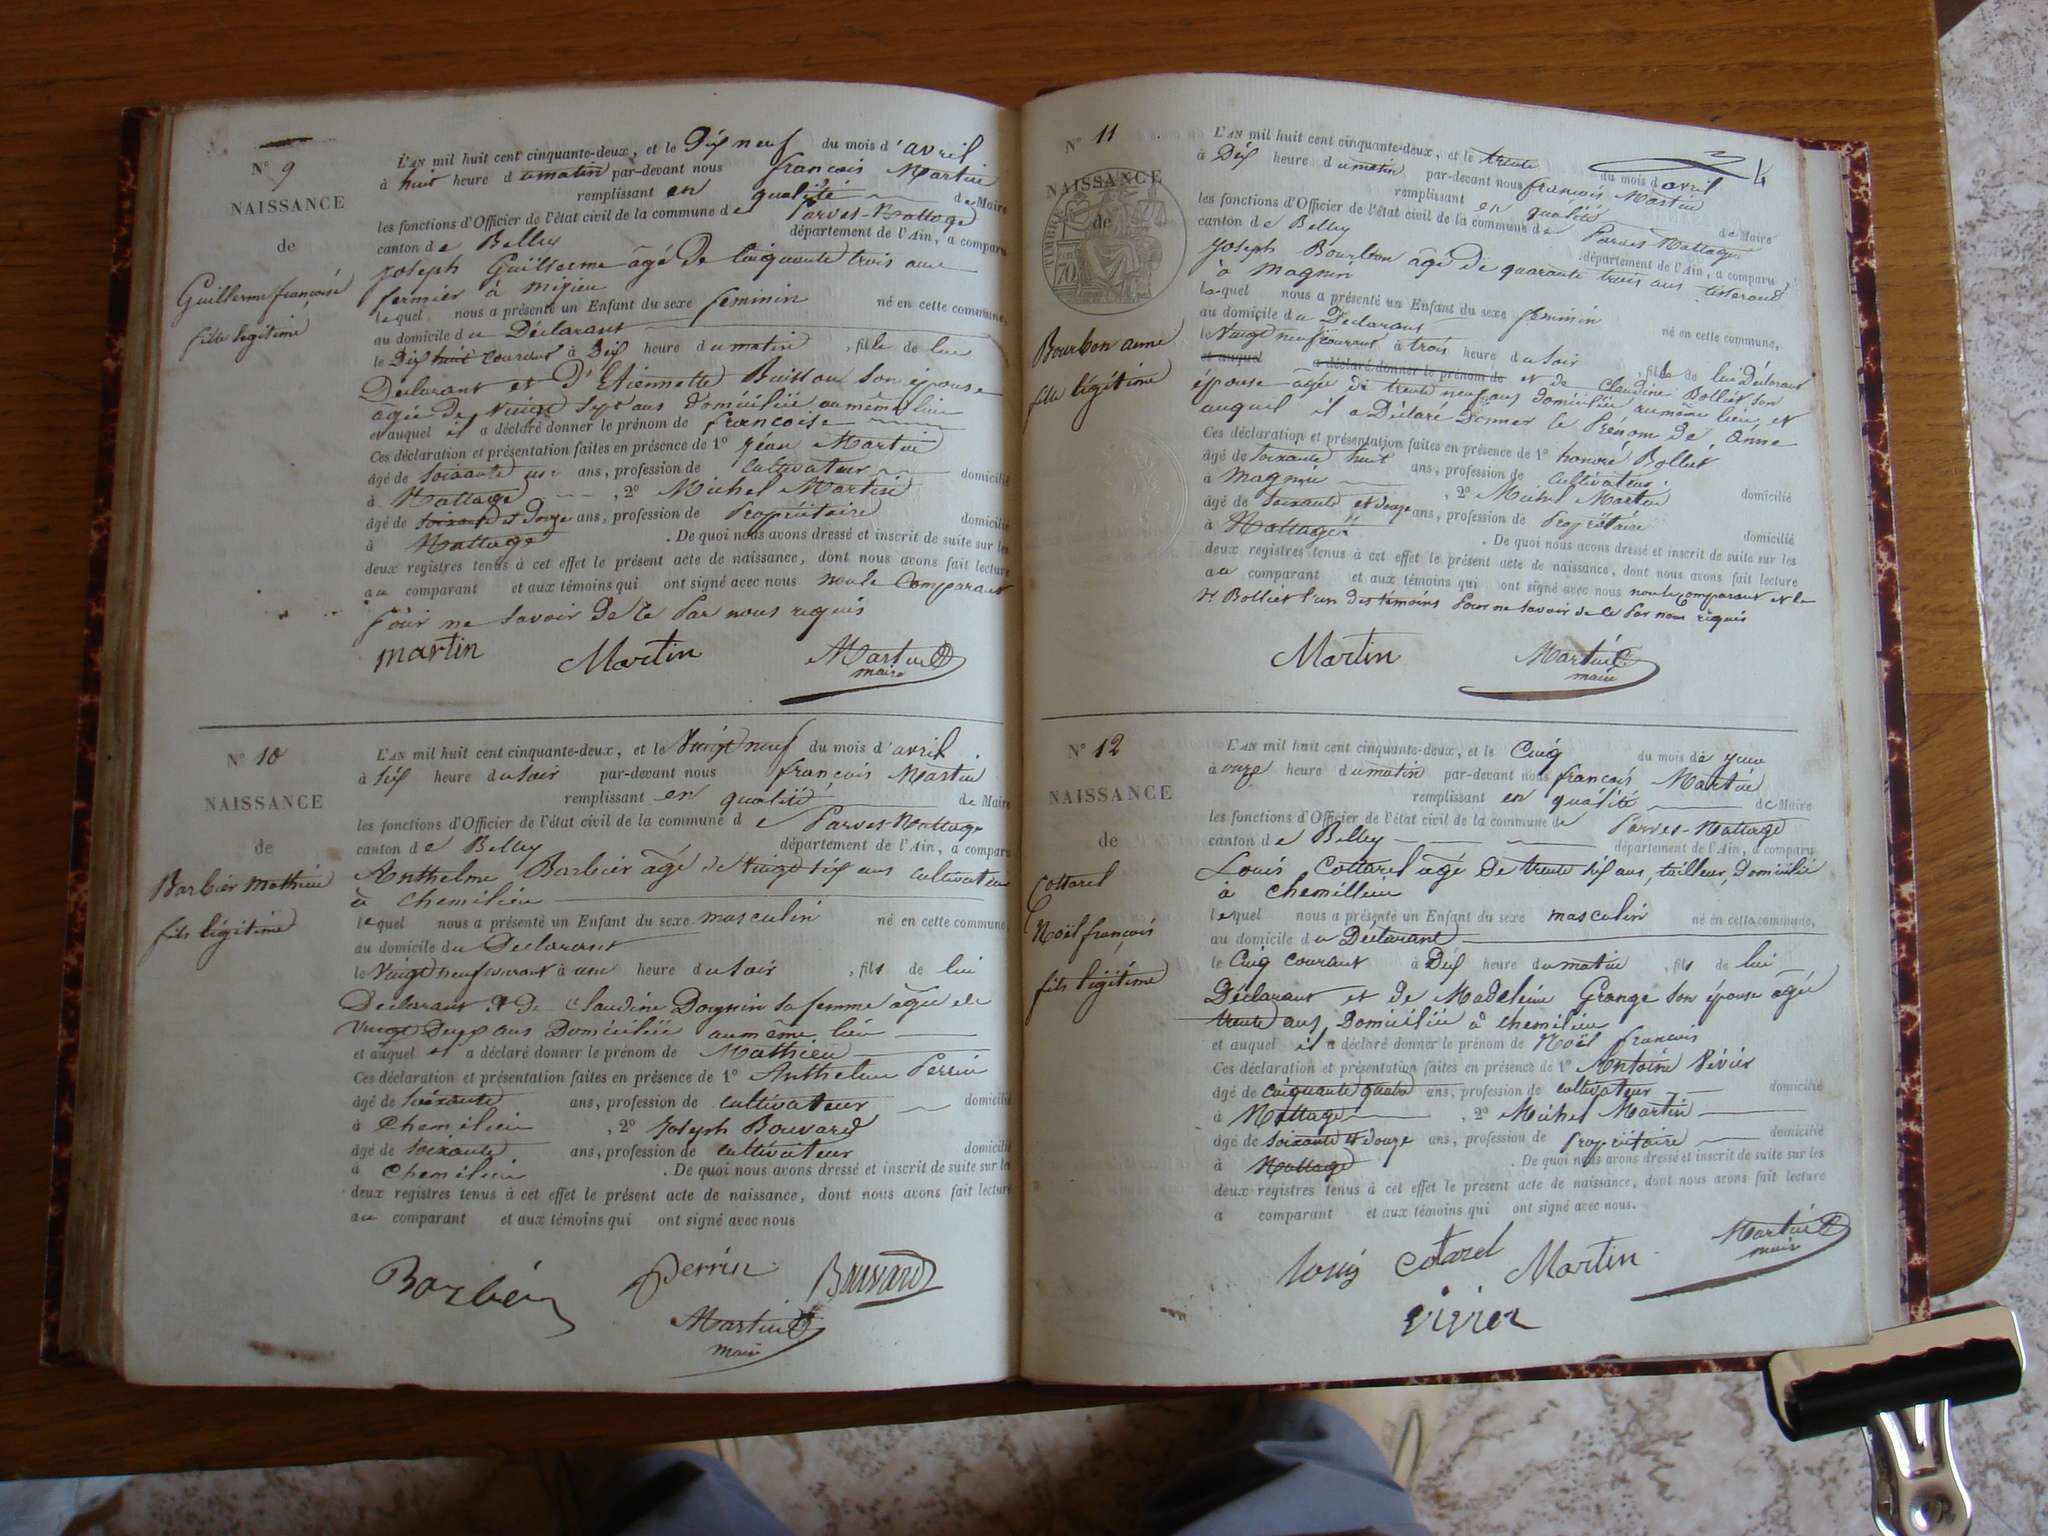 N° 9
NAISSANCE
de
Guillerme françoise
fille légitime
L'AN mil huit cent cinquante-deux, et le Dix neuf du mois d'avril
à huit heure du matin par-devant nous françois Martin
remplissant en qualité de Maire
les fonctions d'Officier de l'état civil de la commune de Parves-Nattage
canton de Belley département de l'Ain, a comparu
Joseph Guillerme âgé de Cinquante trois ans
fermier à
lequel nous a présenté un Enfant du sexe feminin né en cette commune,
au domicile du Déclarant
le Dix huit courant à Dix heure du matin, fille de lui
Déclarant et D'Etiennette Buisson son épouse
agée de Vingt sept ans domiciliée au même lieu
et auquel il a déclaré donner le prénom de françoise
Ces déclaration et présentation faites en présence de 1° Jéan Martin
âgé de Soixante un ans, profession de Cultivateur domicilié
à Nattage, 2° Michel Martin
âgé de soixante et douze ans, profession de Propriétaire domicilié
à Nattage. De quoi nous avons dressé et inscrit de suite sur les
deux registres tenus à cet effet le présent acte de naissance, dont nous avons fait lecture
au comparant et aux témoins qui ont signé avec nous non le Comparant
Pour ne savoir de ce Par nous requis
martin Martin Martin
maire
N° 10
NAISSANCE
de
Barbier Mathieu
fils légitime
L'AN mil huit cent cinquante-deux, et le Vingt neuf du mois d'avril
à Six heure du soir par-devant nous françois Martin
remplissant en qualité de Maire
les fonctions d'Officier de l'état civil de la commune de Parves-Nattage
canton de Belley département de l'Ain, a comparu
Anthelme Barbier agé de Vingt six ans cultivateur
à Chemilieu
lequel nous a présenté un Enfant du sexe masculin né en cette commune,
au domicile du Declarant
le Vingt neuf courant à une heure du soir, fils de lui
Declarant et De Claudine Dognin sa femme agée de
Vingt Deux ans Domiciliée au même lieu
et auquel il a déclaré donner le prénom de Mathieu
Ces déclaration et présentation faites en présence de 1° Anthelme Perrin
âgé de Soixante ans, profession de cultivateur domicilié
à Chemilieu, 2° Joseph Bouvard
âgé de soixante ans, profession de cultivateur domicilié
à Chemilieu. De quoi nous avons dressé et inscrit de suite sur les
deux registres tenus à cet effet le présent acte de naissance, dont nous avons fait lecture
au comparant et aux témoins qui ont signé avec nous
Barbier perrin Bouvard
Martin
maire
N° 11
NAISSANCE
de
TIMBRE
70
Bourbon anne
fille légitime
L'AN mil huit cent cinquante-deux, et le trente du mois d'avril
à Dix heure du matin par-devant nous françois Martin
remplissant en qualité de Maire
les fonctions d'Officier de l'état civil de la commune de Parves Nattage
canton de Belley département de l'Ain, a comparu
Joseph Bourbon agé De quarante trois ans tisserand
à Magnin
lequel nous a présenté un Enfant du sexe feminin né en cette commune,
au domicile du Declarant
le Vingt neuf courant à trois heure du soir, fille de lui Déclarant
et auquel a déclaré donner le prénom de et de Claudine Bolliet son
épouse agée de trente neuf ans domiciliée au même lieu, et
auquel il a Déclaré Donner le Prenom de, Anne
Ces déclaration et présentation faites en présence de 1° honoré Bolliet
âgé de soixante huit ans, profession de Cultivateur domicilié
à Magnin, 2° Michel Martin
âgé de soixante et douze ans, profession de Propriétaire domicilié
à Nattage. De quoi nous avons dressé et inscrit de suite sur les
deux registres tenus à cet effet le présent acte de naissance, dont nous avons fait lecture
au comparant et aux témoins qui ont signé avec nous non le Comparant et le
Sr Bolliet l'un des témoins Pour ne savoir de ce Par nous requis
Martin Martin
maire
N° 12
NAISSANCE
de
Cottarel
Noël françois
fils légitime
L'AN mil huit cent cinquante-deux, et le Cinq du mois de
à onze heure du matin par-devant nous françois Martin
remplissant en qualité de Maire
les fonctions d'Officier de l'état civil de la commune de Parves-Nattage
canton de Belley département de l'Ain, a comparu
Louis Cottarel agé De trente six ans, tailleur, domicilié
à Chemillieu
lequel nous a présenté un Enfant du sexe masculin né en cette commune,
au domicile du Déclarant
le Cinq courant à Dix heure du matin, fils de lui
Déclarant et de Madeleine Grange son épouse agée
trente ans, Domiciliée à Chemilieu
et auquel il a déclaré donner le prénom de Noël francois
Ces déclaration et présentation faites en présence de 1° Antoine Vivier
âgé de cinquante quatre ans, profession de cultivateur domicilié
à Nattage, 2° Michel Martin
âgé de soixante et douze ans, profession de propriétaire domicilié
à Nattage. De quoi nous avons dressé et inscrit de suite sur les
deux registres tenus à cet effet le présent acte de naissance, dont nous avons fait lecture
a comparant et aux témoins qui ont signé avec nous.
louis Cotarel Martin Martin
maire
vivier